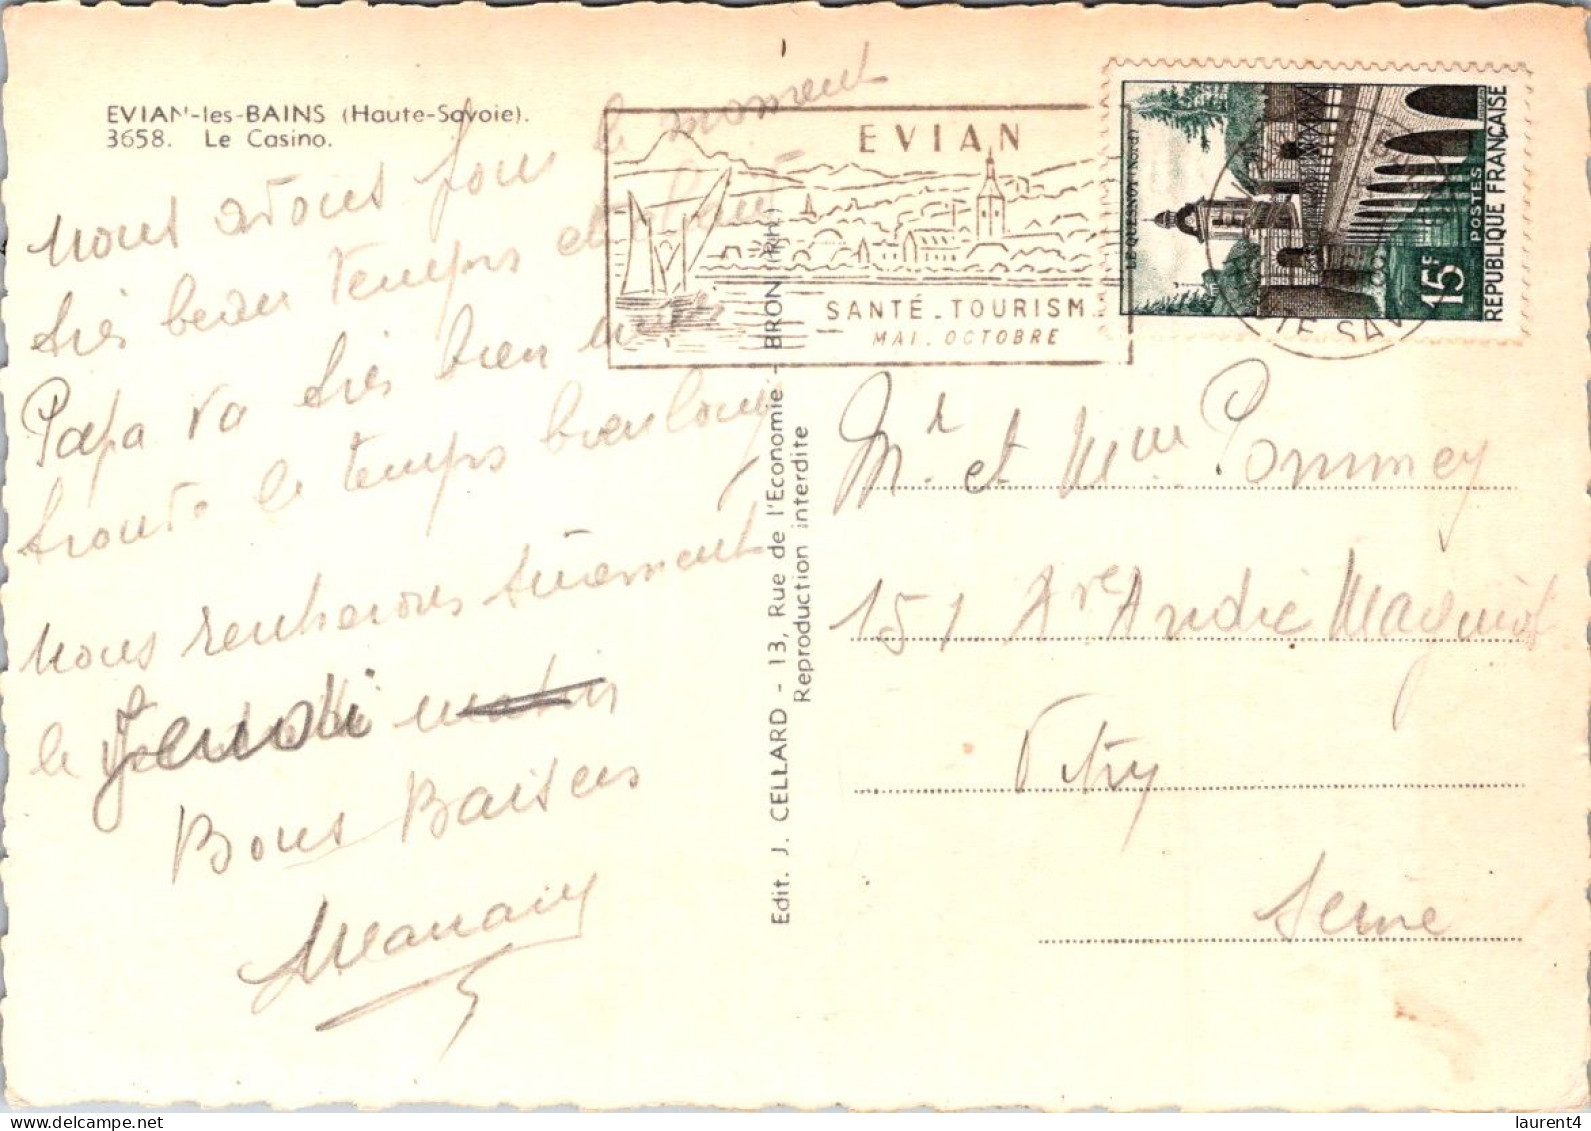 EVIAN-les-BAINS (Haute-Savoie).
3658. Le Casino.
nous avons pour le moment
très beau temps et chaud
Papa va très bien mais
trouve le temps bien long
nous rentrerons sûrement
le Jeudi matin
Bons Baisers
Maman
EVIAN
SANTÉ_TOURISM
MAI_OCTOBRE
LE QUESNOY (Nord)
POSTES
15F
REPUBLIQUE FRANÇAISE
HTE SAV
Edit. J. CELLARD - 13, Rue de l'Economie - BRON (RH.)
Reproduction interdite
Mr et Mme Pommey
151 Ave André Maginot
Vitry
Seine
laurent4